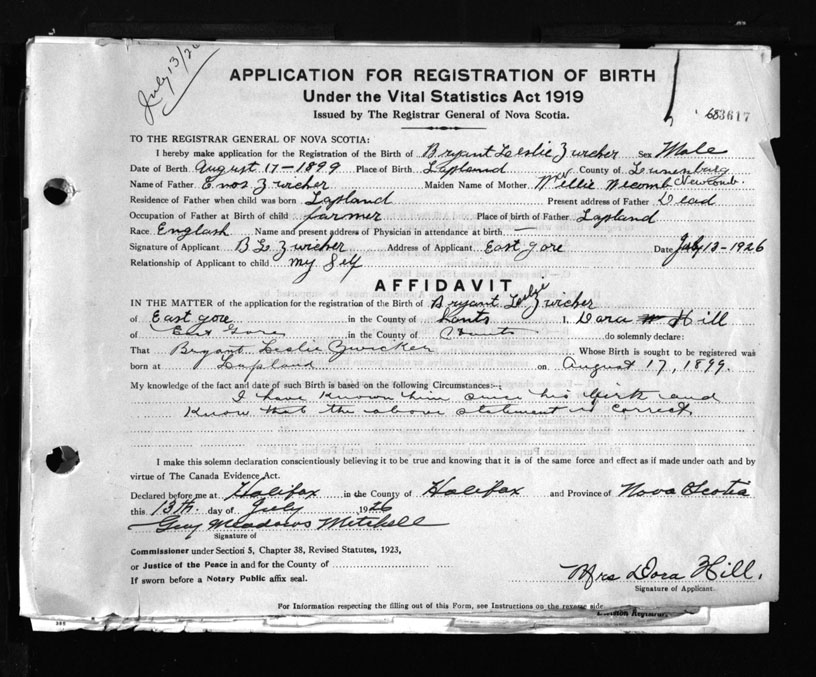 July 13/26
APPLICATION FOR REGISTRATION OF BIRTH
Under the Vital Statistics Act 1919
Issued by The Registrar General of Nova Scotia.
683617
TO THE REGISTRAR GENERAL OF NOVA SCOTIA:
I hereby make application for the Registration of the Birth of Bryant Leslie Zwicher Sex Male
Date of Birth August 17-1899 Place of Birth Lapland County of Lunenburg
Name of Father Enos Zwicher Maiden Name of Mother Millie Newcomb
Residence of Father when child was born Lapland Present address of Father Dead
Occupation of Father at Birth of child farmer Place of birth of Father Lapland
Race Englash Name and present address of Physician in attendance at birth —
Signature of Applicant B L Zwicher Address of Applicant East gore Date July 12-1926
Relationship of Applicant to child my Self
AFFIDAVIT
IN THE MATTER of the application for the registration of the Birth of Bryant Zwicher
of East gore in the County of hants I, Dora Hill
of East Gore in the County of Hants do solemnly declare:
That Bryant Leslie Zwicker Whose Birth is sought to be registered was
born at Lapland on August 17, 1899.
My knowledge of the fact and date of such Birth is based on the following Circumstances:-
I have known him since his birth and
Know that the above statement is correct
I make this solemn declaration conscientiously believing it to be true and knowing that it is of the same force and effect as if made under oath and by
virtue of The Canada Evidence Act.
Declared before me at Halifax in the County of Halifax and Province of Nova Scotia
this 13th day of July 1926
Guy Meadows Mitchell
Signature of
Commissioner under Section 5, Chapter 38, Revised Statutes, 1923,
or Justice of the Peace in and for the County of
If sworn before a Notary Public affix seal.
Mrs Dora Hill.
Signature of Applicant.
For Information respecting the filling out of this Form, see Instructions on the reverse side.
Division Registrar